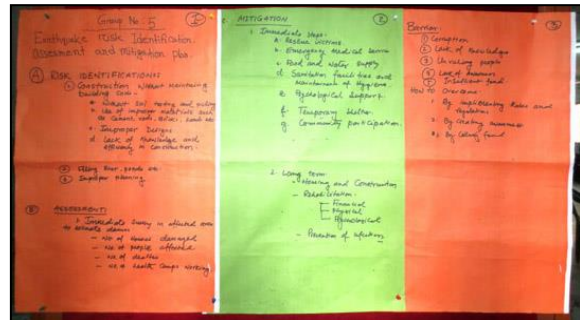 Group No: 5
Earthquake Risk Identification,
assesment and Mitigation plan.
A RISK IDENTIFICATION:
1 Construction without maintaining
building code:
a. Without soil testing and
b. Use of improper materials such
as cement, rods,
c. Improper Designs
d. Lack of knowledge and
in construction.
2 Filling River, ponds etc.
3 Improper planning
B ASSESSMENT:
Immediate Survey in affected area
to estimate
- No of houses damaged
- No of people affected
- No of deaths
- No of health Camps working
1
MITIGATION
2
1. Immediate steps:
a. Rescue victims.
b. Emergency Medical service
c. Food and Water supply
d. Sanitation facilities and
Maintenance of Hygiene
e. Psychological Support.
f. Temporary Shelter
g. Community participation.
2. Long term:
- Housing and Construction
- Rehabilitation:
Financial
Physical
Psychological
- Prevention of infections
Barrier:
3
1 Corruption
2 Lack of Knowledge
3 people
4 Lack of
5 fund
How to Overcome
1. By implementing Rules and
regulations
2. By creating awareness
3. By fund